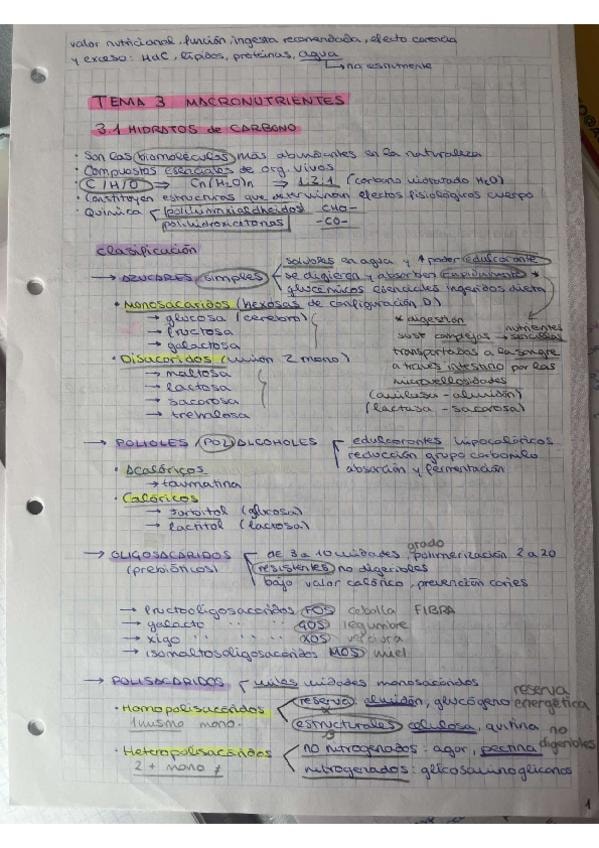 valor nutricional, función, ingesta recomendada, efecto carencia
y exceso: HdC, lípidos, proteínas, agua
↳ no es nutriente
TEMA 3 MACRONUTRIENTES
3.1 HIDRATOS de CARBONO
· Son las biomoléculas más abundantes en la naturaleza
· Compuestos esenciales de org. vivos
· C/H/O ⇒ Cn(H2O)n ⇒ 1:2:1 (carbono hidratado H2O)
· Constituyen estructuras que determinan efectos fisiológicos cuerpo
· Química polihidroxialdheidos CHO-
polihidroxicetonas -CO-
Clasificación
→ AZUCARES simples
solubles en agua y ↑ poder edulcorante
se digieren y absorben rapidamente *
glucémicos esenciales ingeridos dieta
· Monosacaridos (hexosas de configuración D)
→ glucosa (cerebro)
→ fructosa
→ galactosa
· Disacaridos (unión 2 mono)
→ maltosa
→ lactosa
→ sacarosa
→ trehalosa
* digestión
nutrientes
sust complejas → sencillas
transportadas a la sangre
a través intestino por las
microvellosidades
(amilasa - almidón)
(lactasa - sacarosa)
→ POLIOLES / POLIALCOHOLES
edulcorantes hipocalóricos
reducción grupo carbonilo
absorción y fermentación
· Acalóricos
→ taumatina
· Calóricos
→ sorbitol (glucosa)
→ lactitol (lactosa)
→ OLIGOSACARIDOS
(prebióticos)
grado
de 3 a 10 unidades, polimerización 2 a 20
resistentes no digeribles
bajo valor calórico, prevención caries
→ fructooligosacaridos FOS cebolla FIBRA
→ galacto " " " GOS legumbre
→ xigo " " " XOS verdura
→ isomaltosoligosacaridos MOS miel
→ POLISACARIDOS miles unidades monosacáridos
· Homopolisacáridos
1 mismo mono.
reserva: almidón, glucógeno reserva energética
estructurales celulosa, quitina no digeribles
· Heteropolisacáridos
2 + mono ≠
no nitrogenados: agar, pectina
nitrogenados: glicosaminoglicanos
1